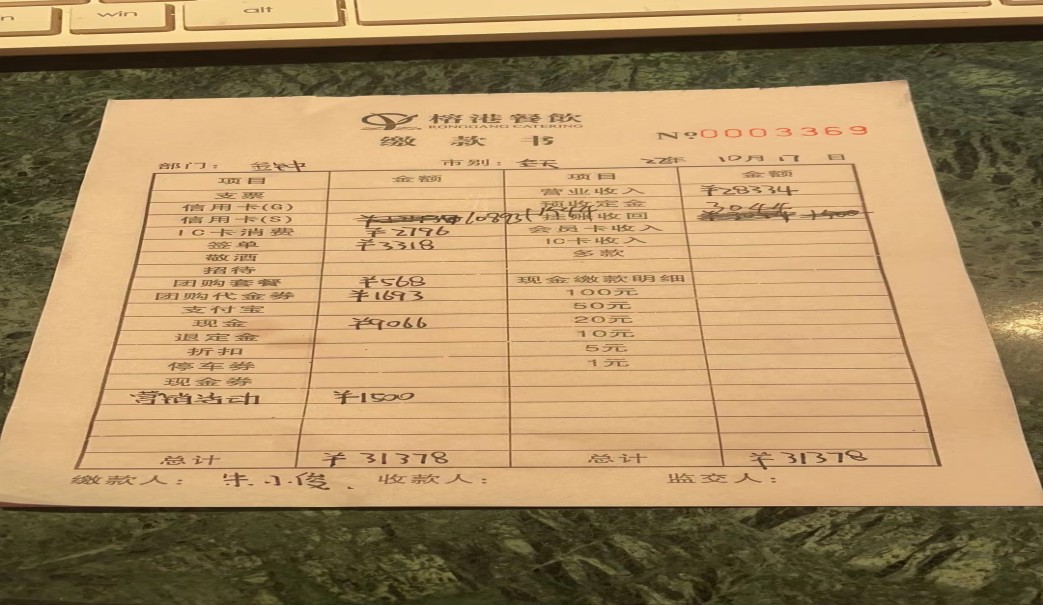 n win alt
榕港餐飲
RONGGANG CATERING
缴款书 №0003369
部门: 金钟 市别: 全天 22年 10月 17日
项目 金额 项目 金额
支票 营业收入 ¥28334
信用卡(G) 预收定金 3044
信用卡(S) 10893+1544 挂账收回
IC卡消费 ¥2796 会员卡收入
签单 ¥3318 IC卡收入
敬酒 多款
招待
团购套餐 ¥568 现金缴款明细
团购代金券 ¥1693 100元
支付宝 50元
现金 ¥9066 20元
退定金 10元
折扣 5元
停车券 1元
现金券
营销活动 ¥1500
总计 ¥31378 总计 ¥31378
缴款人: 朱小俊、 收款人: 监交人: